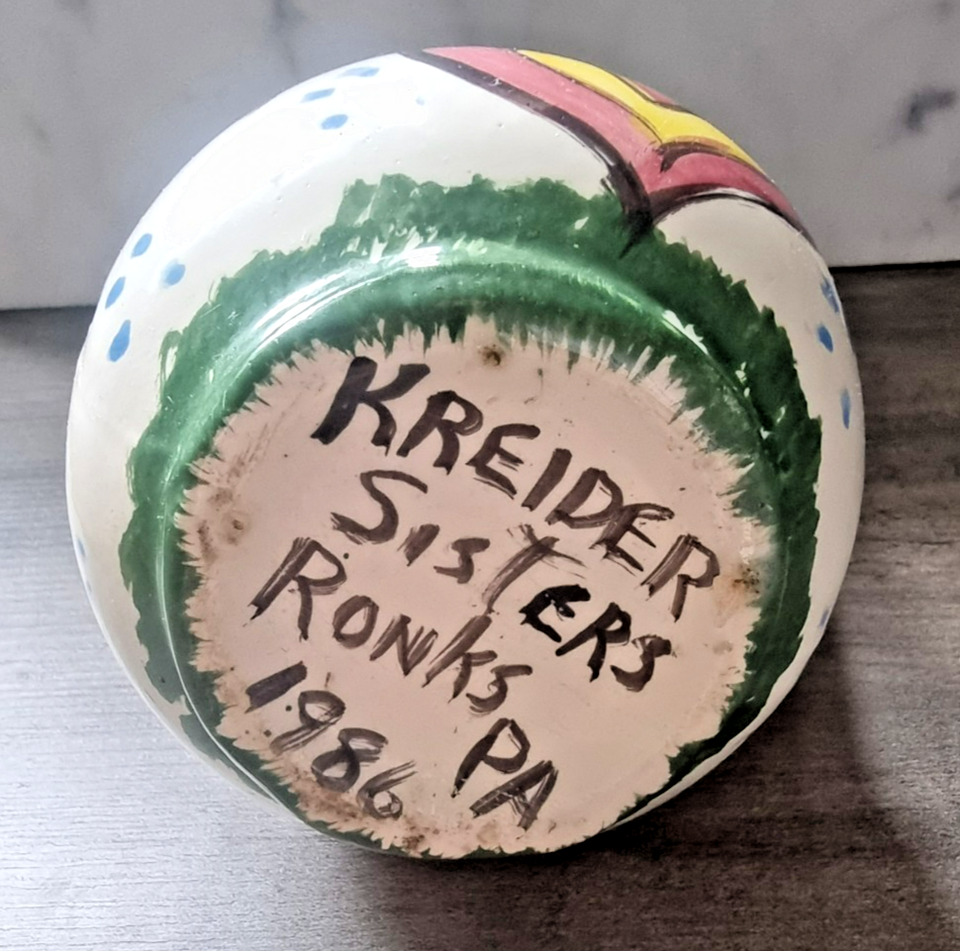 KREIDER
SISTERS
RONKS PA
1986